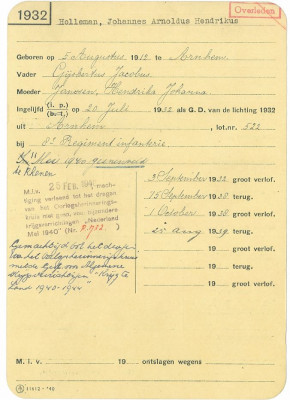 1932
Overleden
Holleman, Johannes Arnoldus Hendrikus
Geboren op 5 Augustus 1912 te Arnhem.
Vader Gijsbertus Jacobus.
Moeder Janssen, Hendrika Johanna.
Ingelijfd (i. p.) (buit.) op 20 Juli 1932 als G. D. van de lichting 1932
uit Arnhem, lot.nr. 522
bij 8e Regiment infanterie.
Mei 1940 gesneuveld
te Rhenen
3 September 1932. groot verlof.
M.i.v. 20 FEB. mach-
tiging verleend tot het dragen
van het Oorlogsherinnerings-
kruis met gesp. voor bijzondere
krijgsverrichtingen "Nederland
Mei 1940" (Nr.
15 September 1938. terug.
1 October 1938 groot verlof.
25 Aug 1939. terug.
19 groot verlof.
Gemachtigd tot het dragen
van het oorlogsherinneringskruis
Krijgsverrichtingen "Krijg te
Land 1940-1944"
19 terug.
19 groot verlof.
19 terug.
19 groot verlof.
M. i. v. 19 ontslagen wegens